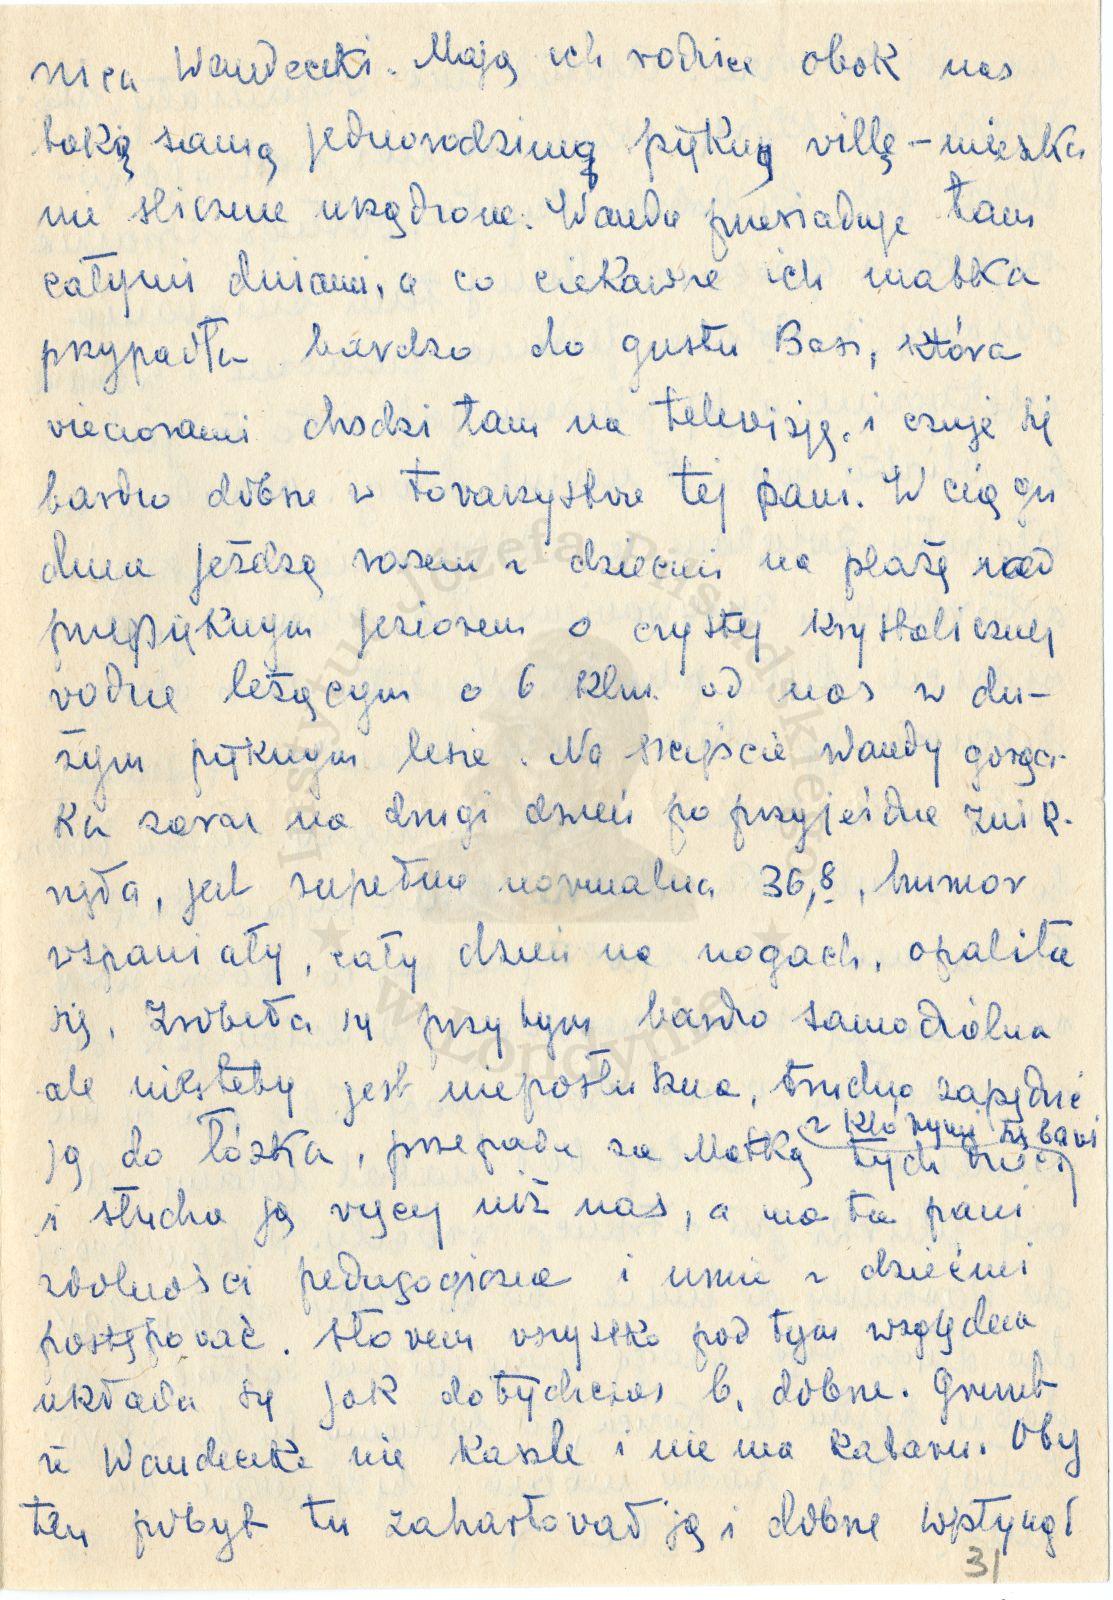 nica Wandeczki. Mają ich rodzice obok nas
taką samą jednorodzinną piękną villę – mieszka
nie ślicznie urządzone. Wanda przesiaduje tam
całymi dniami, a co ciekawsze ich matka
przypadła bardzo do gustu Basi, która
vieczorami chodzi tam na televizję, i czuje się
bardzo dobrze w tovarzystvie tej pani. W ciągu
dnia jeżdżą razem z dziećmi na plażę nad
przepięknym jeziorem o czystej krystalicznej
vodzie leżącym o 6 klm. od nas w du-
żym pięknym lesie. Na szczęście Wandy gorącz-
ka zaraz na drugi dzień po przyjeździe znik-
nęła, jest zupełnie normalna 36,8, humor
vspaniały, cały dzień na nogach, opaliła
się. Zrobiła się przy tym bardzo samodzielna
ale niestety jest nieposłuszna, trudno zapędzić
ją do łóżka, przepada za Matką tych dzieci
z którymi się bavi
i słucha ją vięcej niż nas, a ma ta pani
zdolności pedagogiczne i umie z dziećmi
postępovać. Słovem vszystko pod tym względem
układa się jak dotychczas b. dobrze. Grunt
że Wandeczka nie kaszle i nie ma kataru. Oby
ten pobyt tu zahartovał ją i dobrze wpłynął
31
Instytut Józefa Piłsudskiego
w Londynie